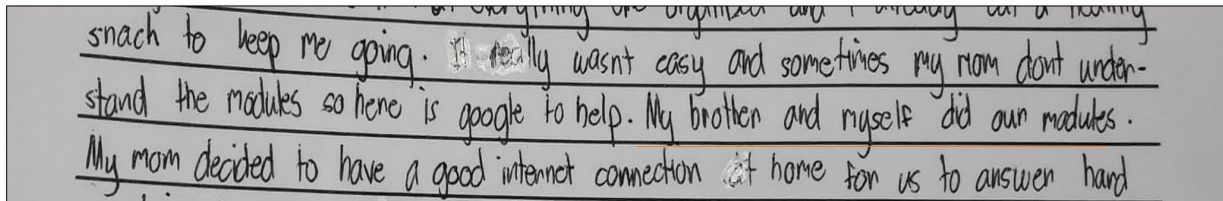 everything are organized and I already eat a healthy
snack to keep me going. It really wasnt easy and sometimes my mom dont under-
stand the modules so here is google to help. My brother and myself did our modules.
My mom decided to have a good internet connection at home for us to answer hard